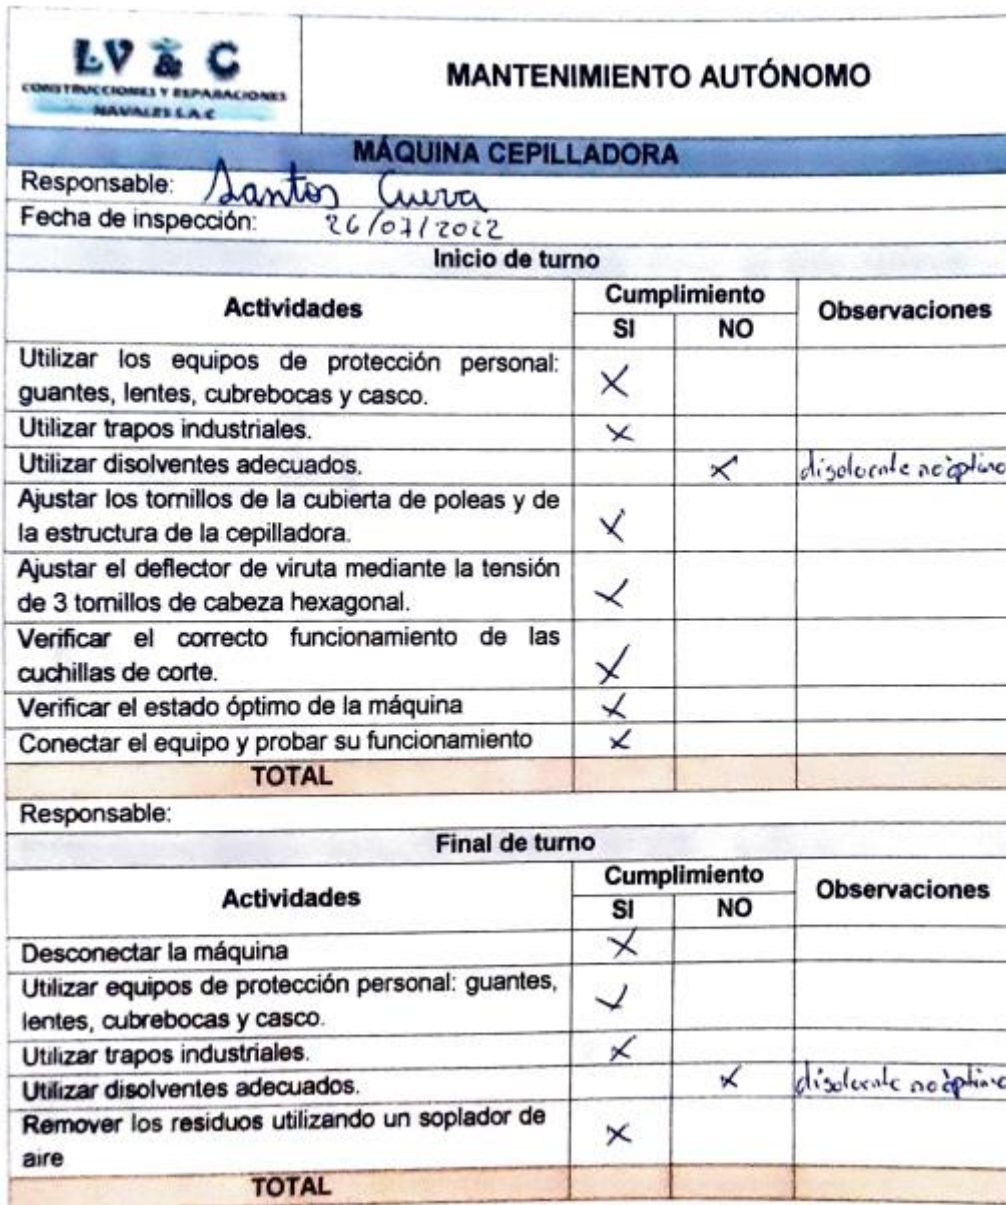 LV & C
CONSTRUCCIONES Y REPARACIONES
NAVALES S.A.C
MANTENIMIENTO AUTÓNOMO
MÁQUINA CEPILLADORA
Responsable: Santos Cueva
Fecha de inspección: 26/07/2022
Inicio de turno
Actividades Cumplimiento Observaciones
SI NO
Utilizar los equipos de protección personal:
guantes, lentes, cubrebocas y casco. X
Utilizar trapos industriales. X
Utilizar disolventes adecuados. X disolvente no óptimo
Ajustar los tornillos de la cubierta de poleas y de
la estructura de la cepilladora. X
Ajustar el deflector de viruta mediante la tensión
de 3 tornillos de cabeza hexagonal. X
Verificar el correcto funcionamiento de las
cuchillas de corte. X
Verificar el estado óptimo de la máquina X
Conectar el equipo y probar su funcionamiento X
TOTAL
Responsable:
Final de turno
Actividades Cumplimiento Observaciones
SI NO
Desconectar la máquina X
Utilizar equipos de protección personal: guantes,
lentes, cubrebocas y casco. X
Utilizar trapos industriales. X
Utilizar disolventes adecuados. X disolvente no óptimo
Remover los residuos utilizando un soplador de
aire X
TOTAL